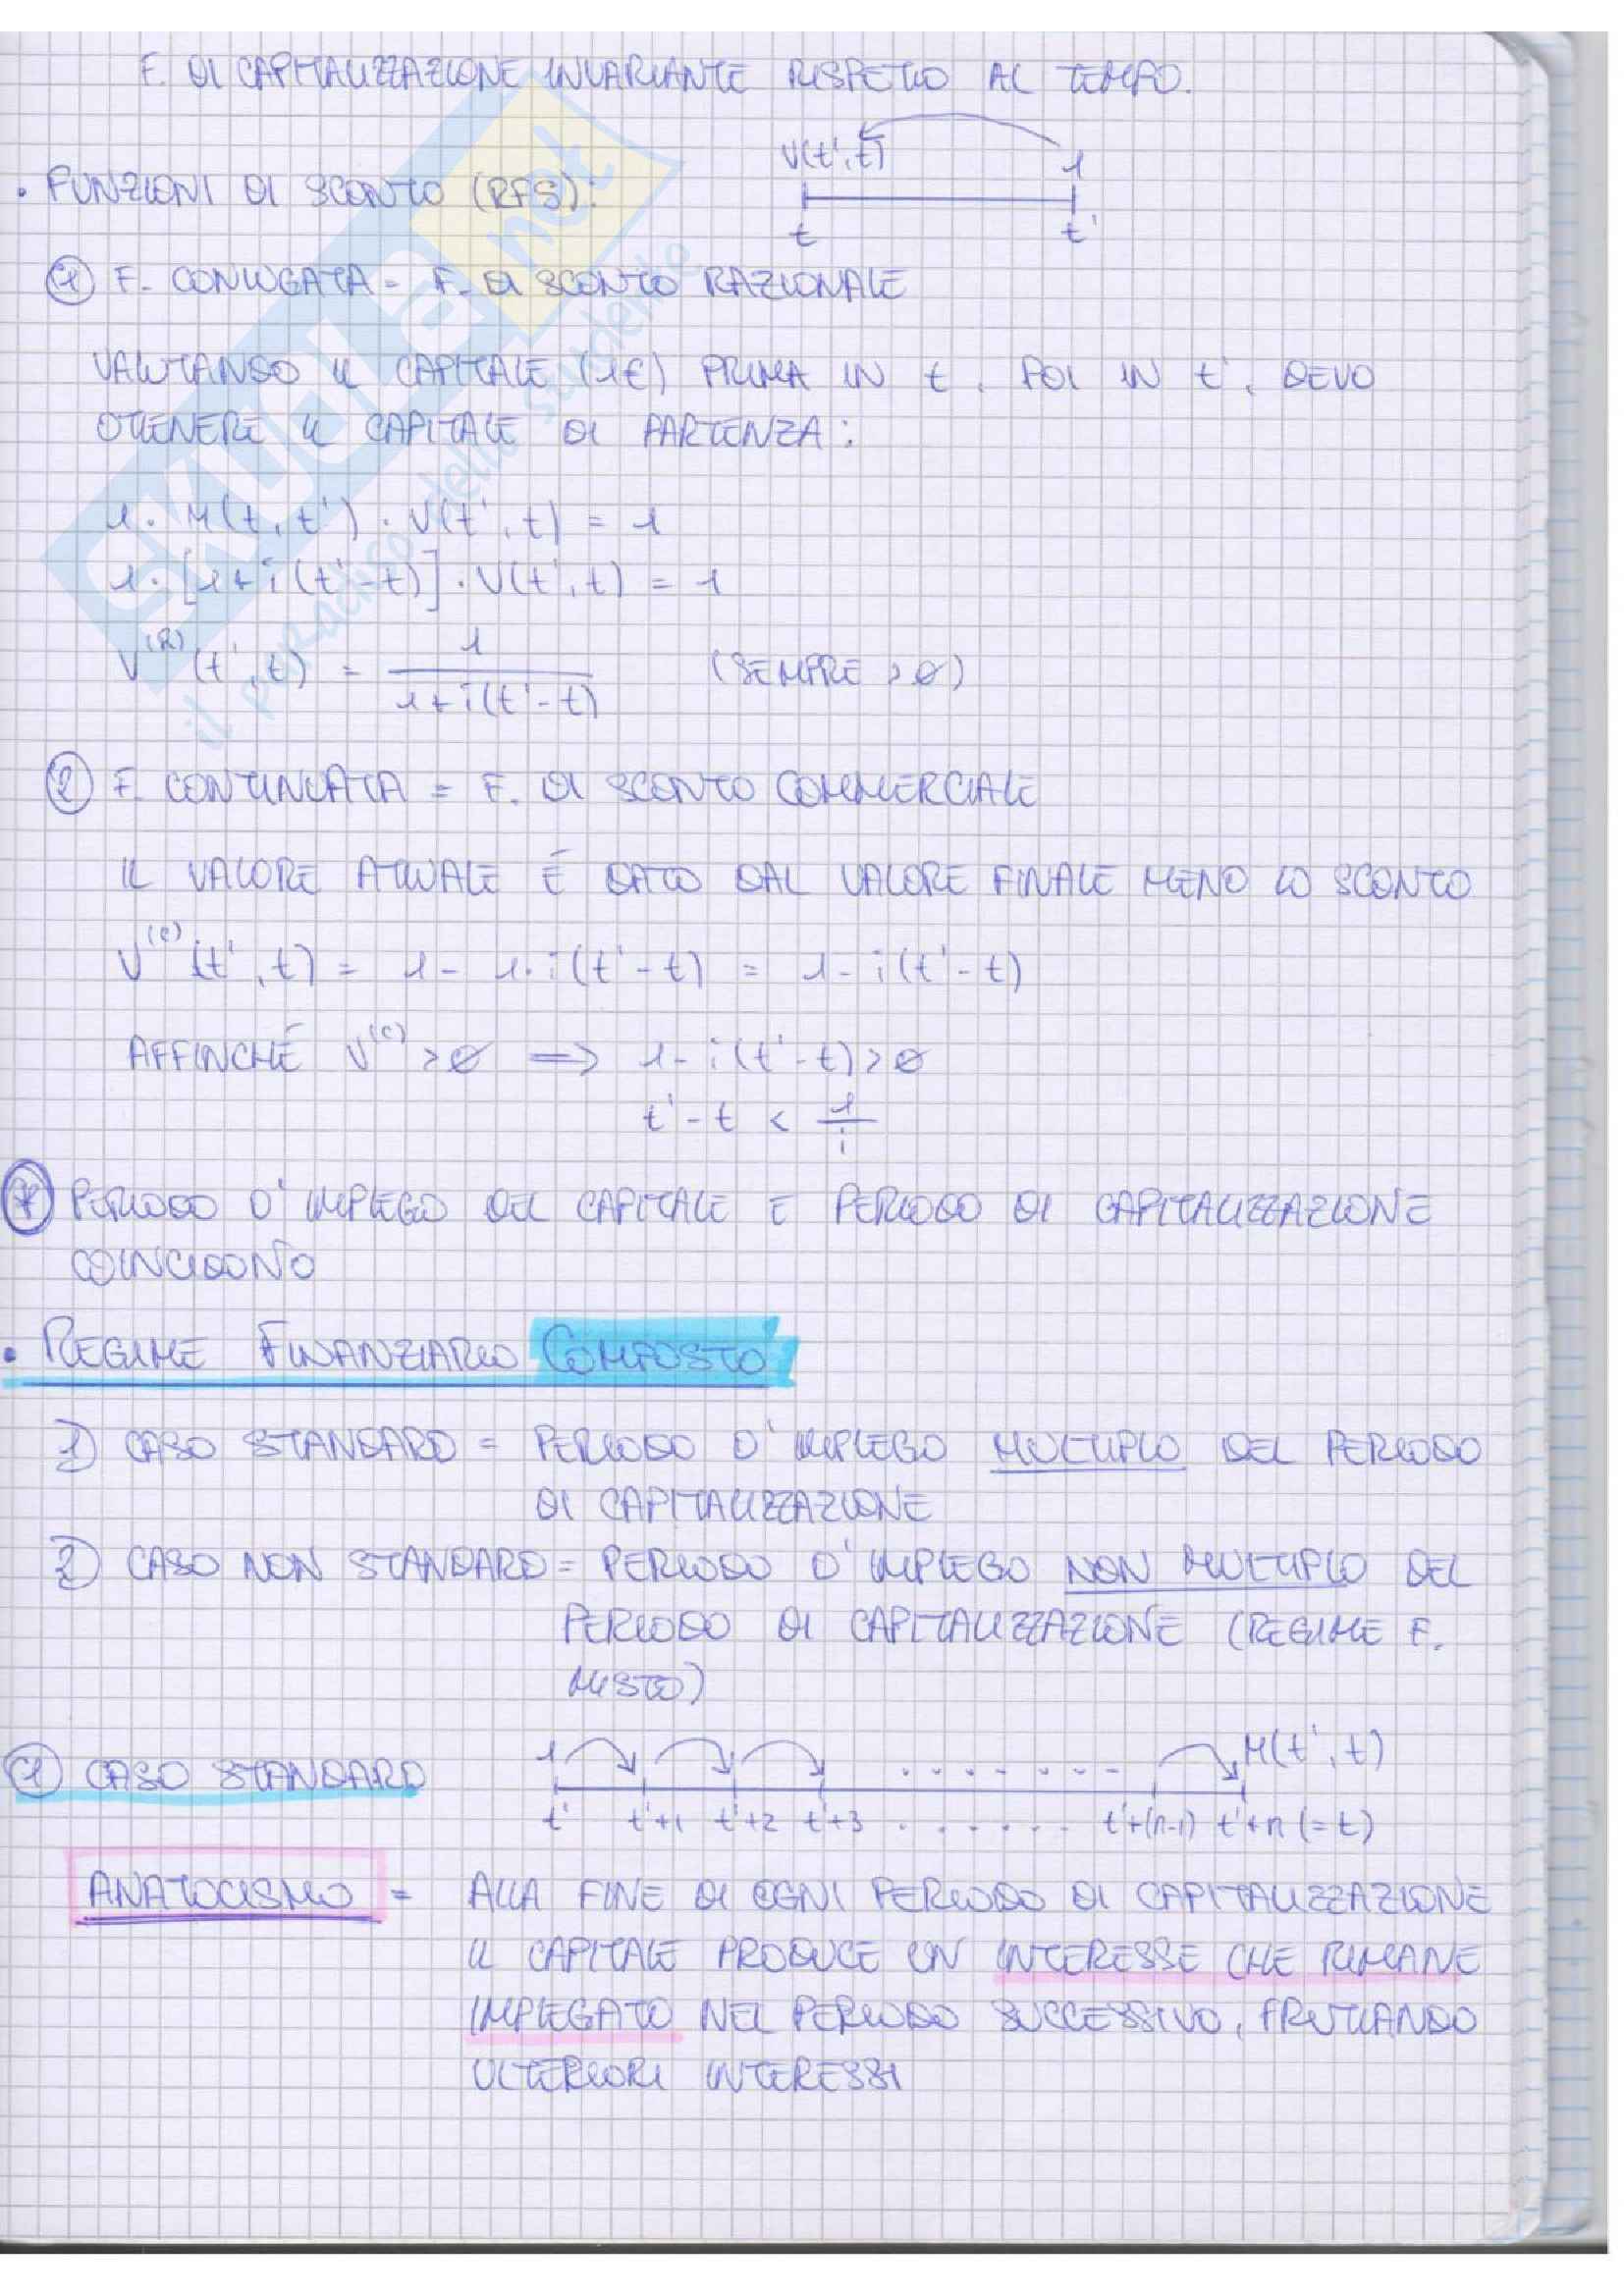 F. DI CAPITALIZZAZIONE INVARIANTE RISPETTO AL TEMPO.
V(t',t) 1
• FUNZIONI DI SCONTO (RFS):
t t'
① F. CONIUGATA - F. DI SCONTO RAZIONALE
VALUTANDO IL CAPITALE (1€) PRIMA IN t, POI IN t', DEVO
OTTENERE IL CAPITALE DI PARTENZA:
1 · M(t,t') · V(t',t) = 1
1 · [1+i(t'-t)] · V(t',t) = 1
V^(R) (t',t) = 1 / 1+i(t'-t) (SEMPRE >0)
② F. CONTINUATA = F. DI SCONTO COMMERCIALE
IL VALORE ATTUALE È DATO DAL VALORE FINALE MENO LO SCONTO
V^(C) (t',t) = 1 - 1·i(t'-t) = 1 - i(t'-t)
AFFINCHÉ V^(C) >0 ⟹ 1 - i(t'-t) >0
t'-t < 1/i
PERIODO D'IMPIEGO DEL CAPITALE E PERIODO DI CAPITALIZZAZIONE
COINCIDONO
• REGIME FINANZIARIO COMPOSTO
1) CASO STANDARD = PERIODO D'IMPIEGO MULTIPLO DEL PERIODO
DI CAPITALIZZAZIONE
2) CASO NON STANDARD = PERIODO D'IMPIEGO NON MULTIPLO DEL
PERIODO DI CAPITALIZZAZIONE (REGIME F.
MISTO)
1 . . . . . . . M(t',t)
① CASO STANDARD
t' t'+1 t'+2 t'+3 . . . . . . t'+(n-1) t'+n (=t)
ANATOCISMO = ALLA FINE DI OGNI PERIODO DI CAPITALIZZAZIONE
IL CAPITALE PRODUCE UN INTERESSE CHE RIMANE
IMPIEGATO NEL PERIODO SUCCESSIVO, FRUTTANDO
ULTERIORI INTERESSI
SKUOLA.net